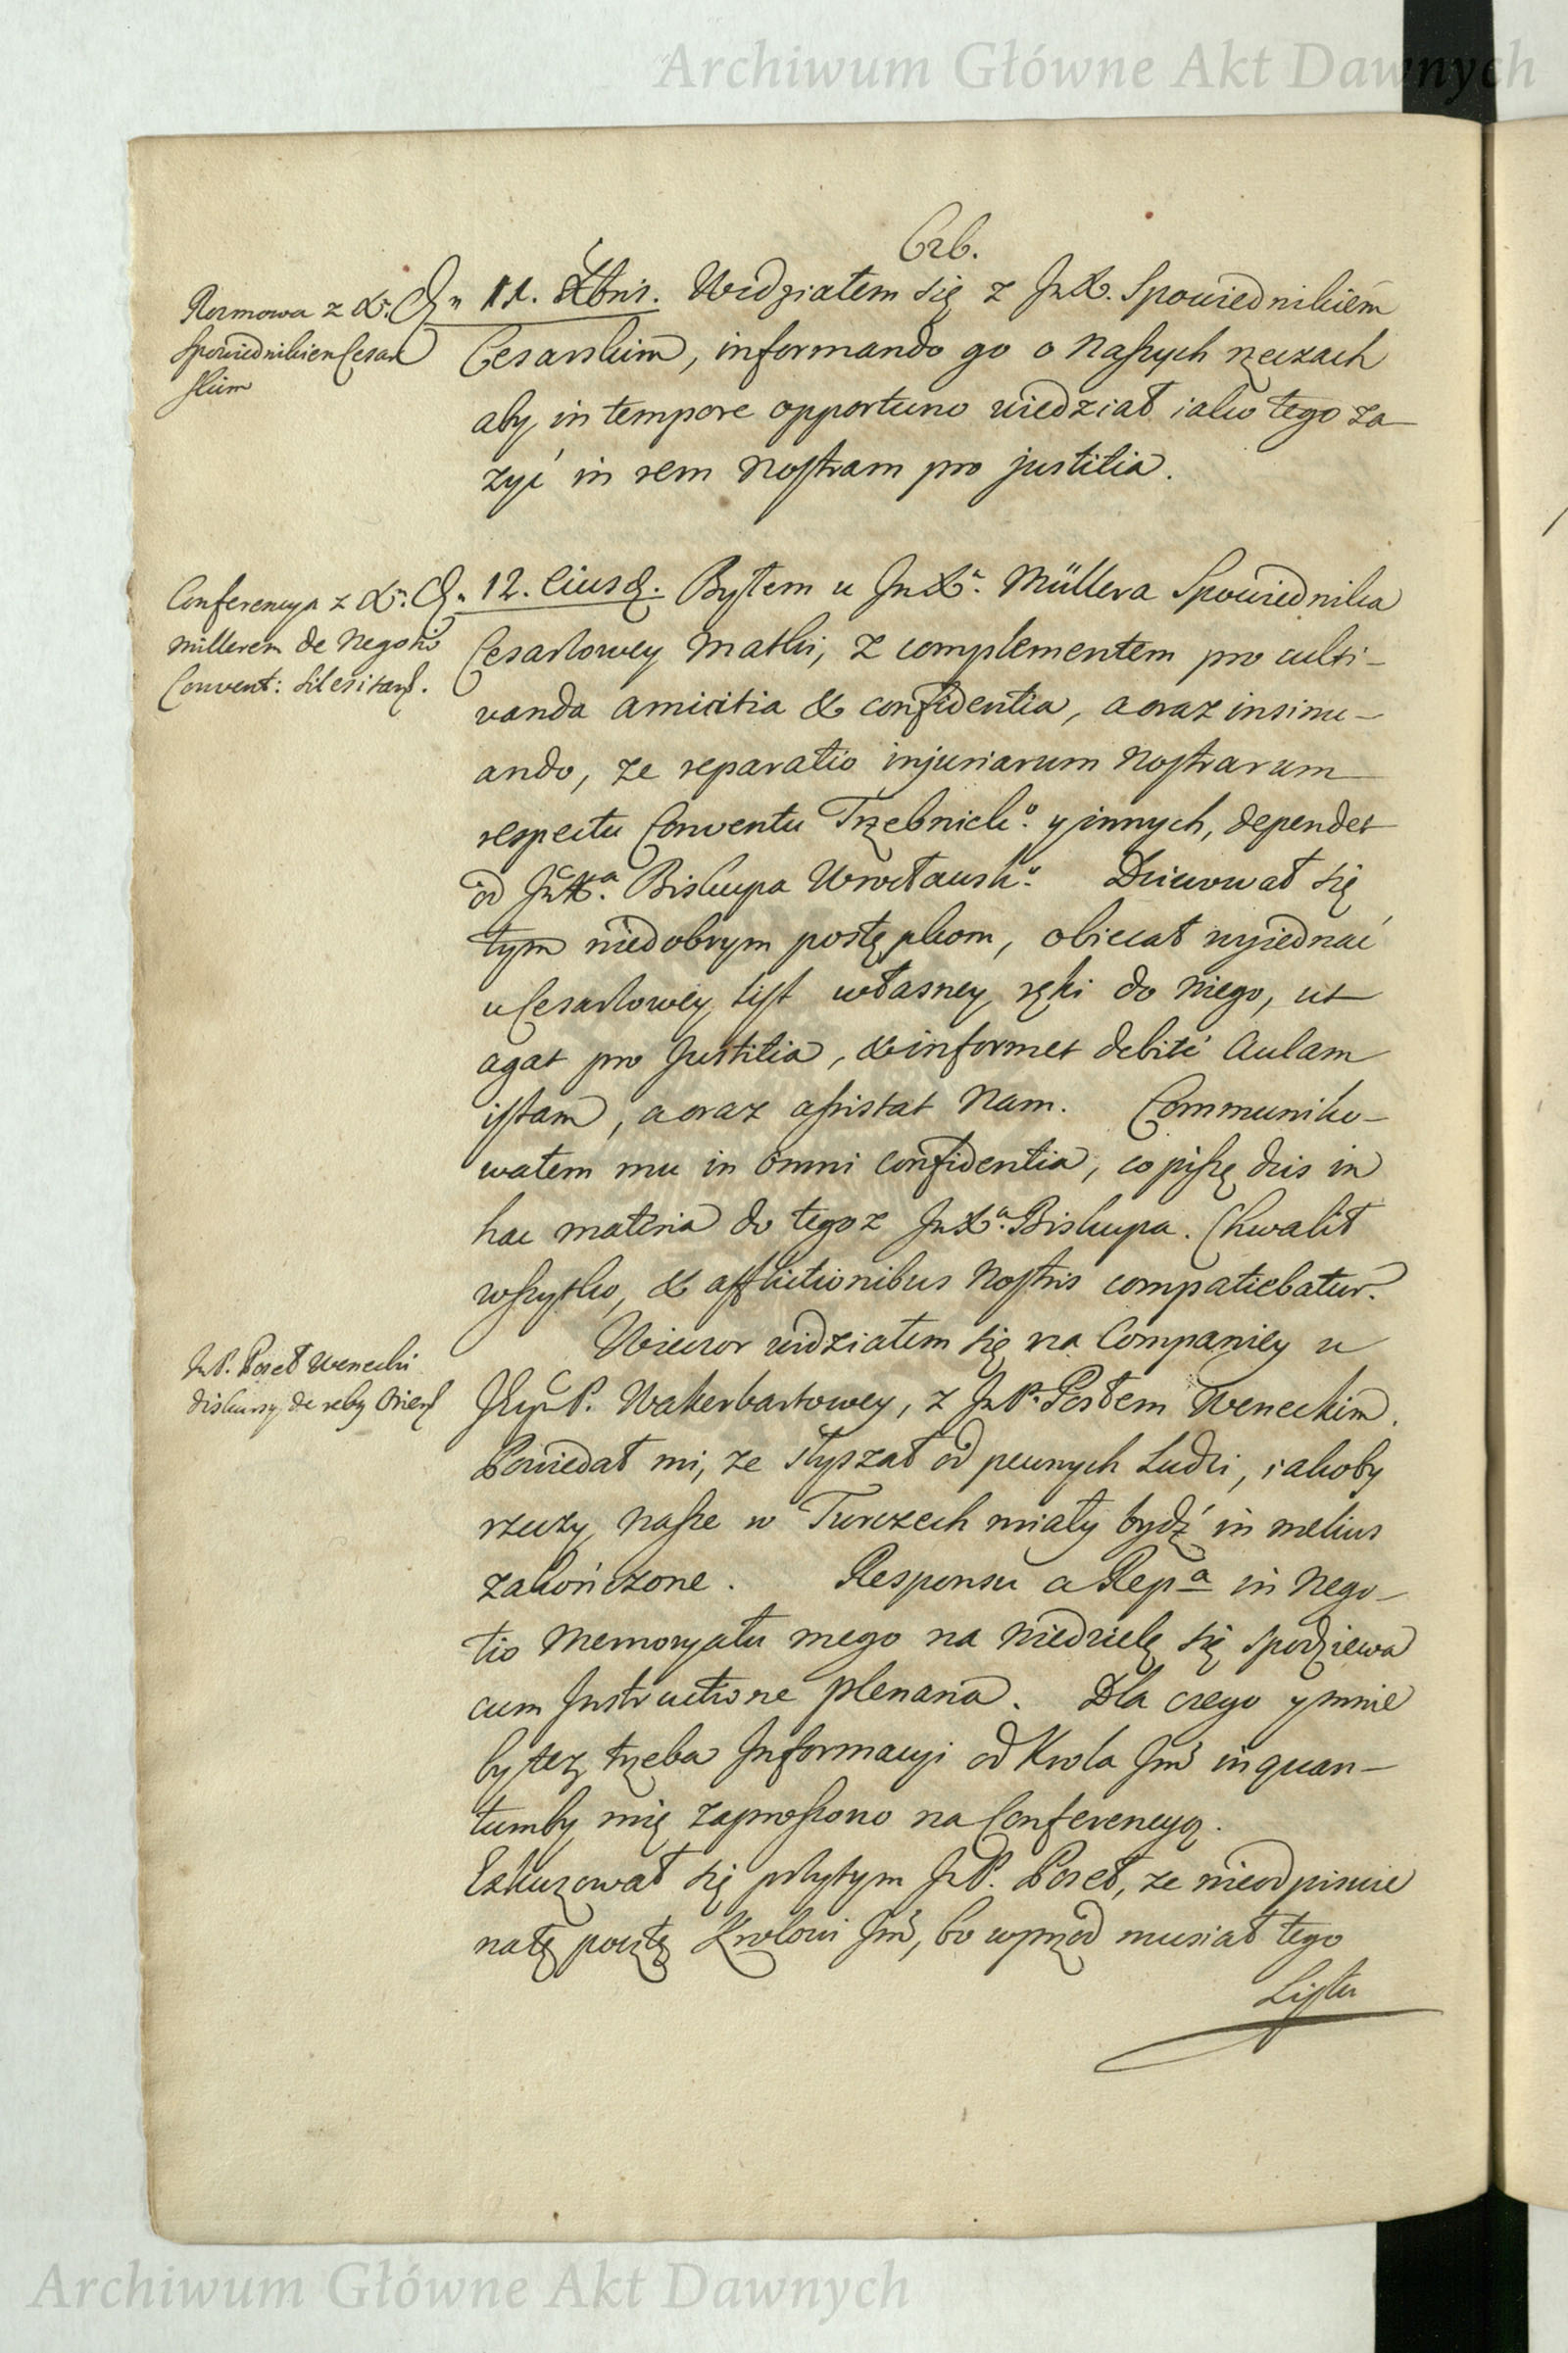 Archiwum Główne Akt Dawnych
Rozmowa z X.
Spowiednikien Cesar
skim
11. Xbris. Widziałem się z JmX. Spowiednikiem
Cesarskim, informando go o naszych rzeczach
aby in tempore opportuno wiedział iako tego za-
zyć in rem nostram pro justitia.
Conferencya z Xm.
Millerem de Negotio
Convent: Silesitan.
12. Eiusd. Byłem u JmXa. Müllera Spowiednika
Cesarzowey Matki, z complementem pro culti-
vanda amicitia & confidentia, a oraz insinu-
ando, ze reparatio injuriarum nostrarum
respectu Conventu Trzebnick.o y innych, dependet
od JmXa. Biskupa Wrocławsk.o Dziwował się
tym niedobrym postępkom, obiecał wyiednać
u Cesarzowey list własney ręki do niego, ut
agat pro Justitia, & informet debité Aulam
istam, a oraz assistat Nam. Communiko-
wałem mu in omni confidentia, co piszę dzis in
hac materia do tegoz JmXa. Biskupa. Chwalił
wszytko, & afflictionibus nostris compatiebatur.
JmP. Poseł Wenecki
diskursy de reby Orient
Wieczor widziałem się na Companiey u
P. Wakerbartowey, z JmP. Posłem Weneckim.
Powiedał mi, ze słyszał od pewnych Ludzi, iakoby
rzeczy nasze w Turczech miały bydź in melius
zakończone. Responsu a Rep.a in Nego-
tio Memoryału mego na Niedzielę się spodziewa
cum Instructione plenaria. Dla czego y mnie
by tez trzeba Informacyi od Krola Jmś in quan-
tumby mię zaproszono na Conferencyą.
Exkuzował się przytym JmP. Poseł, ze nieodpisuie
na tę pocztę Krolowi Jmś, bo wprzod musiał tego
Listu
Archiwum Główne Akt Dawnych